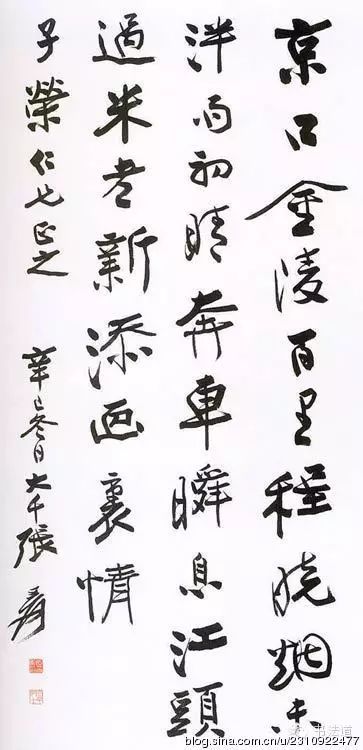 京口金陵百里程曉烟未
泮雨初晴奔車瞬息江頭
過米老新添画裏情
子榮仁兄正之
辛巳冬日大千張爰
书法道
blog.sina.com.cn/u/2310922477